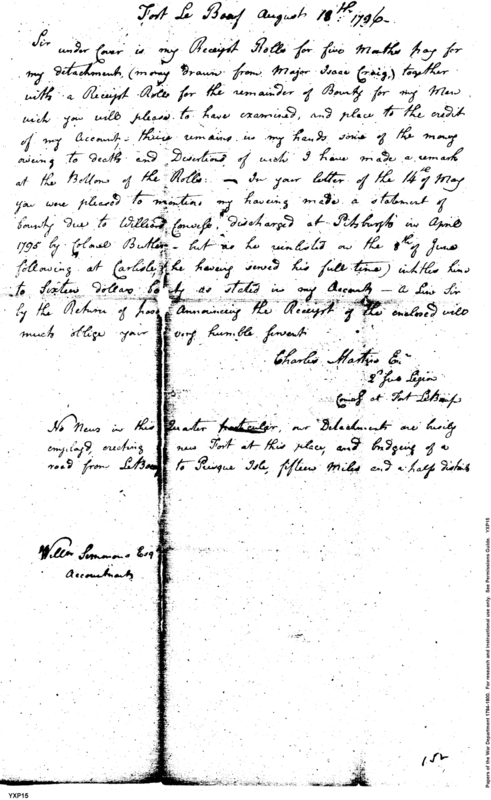 Fort Le Boeuf August 18th. 1796-
Sir
under Cover is my Receipt Rolls for five Months pay for
my detachment, (money drawn from Major Isaac Craig,) together
with a Receipt Rolls for the remainder of Bounty for my Men
wich you will please to have examined, and place to the credit
of my Account; there remains in my hands some of the money
owing to death and Desertions of wich I have made a remark
at the Bottom of the Rolls. - In your letter of the 14th of May
you were pleased to mention my haveing made a statement of
bounty due to William discharged at Pitsburgh in April
1795 by Colonel Butler - but as he reinlisted on the of June
following at Carlisle (he having served his full time) intitles him
to Sixteen dollars as stated in my Account - A Line Sir
by the Return of post Announcing the Receipt of the enclosed will
much oblige your very humble Servent
Charles Martin En
2d Sub Legion
Comdg at Fort LeBoeuf
No News in this Quater particular, our Detachment are busily
employd, erecting new Fort at this place, and bridging of a
road from LeBoeuf to Presque Isle, fifteen Miles and a half distant
Willm Simmons Esqr
Accountant
152
Papers of the War Department 1784-1800. For research and instructional use only. See Permissions Guide. YXP15
YXP15